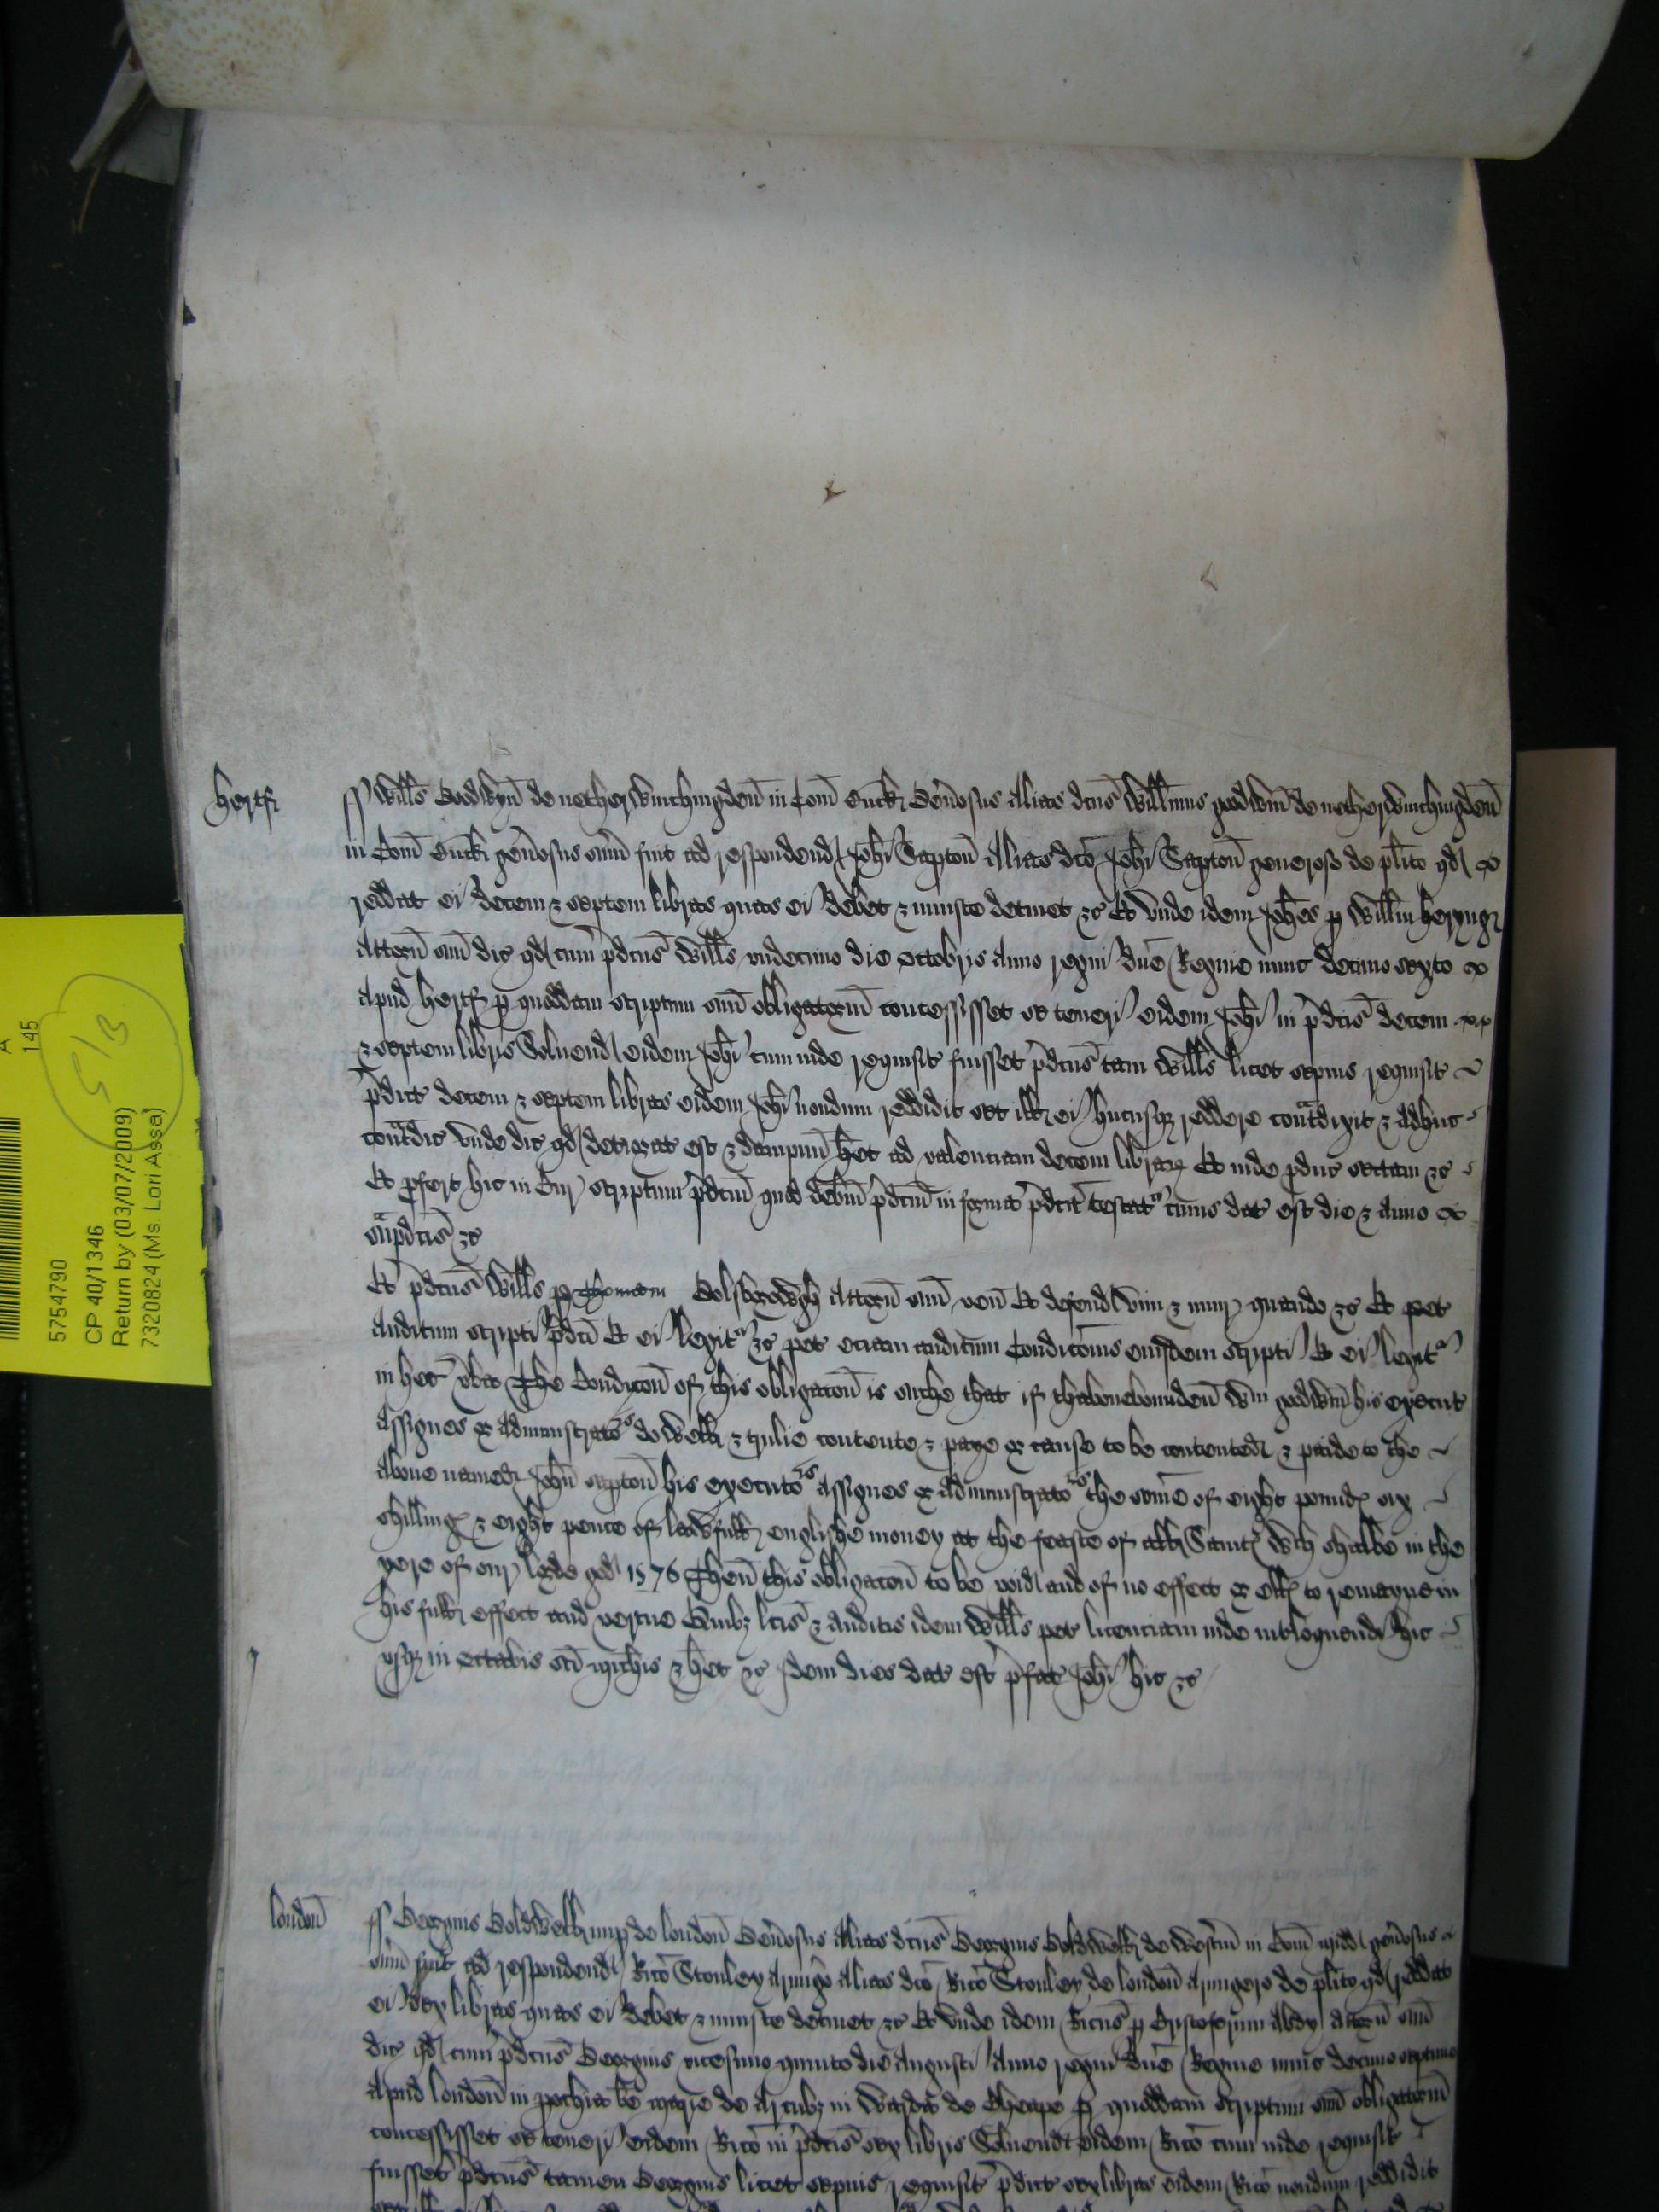 A
145
S/B
5754790
CP 40/1346
Return by (03/07/2009)
7320824 (Ms. Lori Assa)
Hertf
ss Willms Goodwyn de netherwinchingden in Com Buck Genosus Alias dcus Willmus goodwin de netherwinchingden
in Com Buck genosus sum fuit ad respondend Johi Saxton Alias dco Johi Saxton generoso de plito qd
reddat ei decem & septem libras quas ei debet & iniuste detinet &c Et unde idem Johes p Willm heryng
Attorn suu dic qd cum pdcus Wills undecimo die Octobris Anno regni dne Regine nunc decimo sexto
apud hertf p quoddam scriptum suu obligatorm concessisset se teneri eidem Johi in pdcis decem
& septem libris Soluend eidem Johi cum inde requisit fuisset pdcus tam Wills licet sepius requisit
pdict decem & septem libras eidem Johi nondum reddidit set ill ei hucusq reddere contadixit & adhuc
contadic unde dic qd deteriorat est & dampnu het ad valenciam decem librar Et inde pduc sectam &c
Et pfert hic in Cur scriptum pdcm quod debm pdcm in forma pdca testat cuius dat est die & anno
supadcis &c
Et pdcus Wills p Thomam attorn suu ven Et defend vim & iniur quando &c Et pet
auditum scripti pdci Et ei legit &c pet eciam auditum Condicois eiusdem scripti Et ei legit
in hec vba The Condicon of this obligacon is suche that if thabovebounden Wm godwin his execut
assignes or administrators do well & trulie contente & paye or cause to be contented & paide to the
above named John saxton his executors assignes or administrators the some of eight pound six
shilling & eight pence of lawfull englishe money at the feaste of all Saint wch shalbe in the
yere of our lorde god 1576 Then this obligacon to be void and of no effect or ells to remayne in
his full effect and vertue Quibz lcis & auditis idem Wills pet licenciam inde intloquendi hic
usq in octabis sci michis & het &c Idem dies dat est pfat Johi hic &c
london
ss Georgius Goldwell nup de london Genosus Alias dcus Georgius Goldwell de westm in Com midd genosus
sum fuit ad respondend Rico Stonley Armigo Alias dco Rico Stonley de london Armigero de plito qd reddat
ei sex libras quas ei debet & iniuste detinet &c Et unde idem Ricus p Cristoferum Abdy attorn suu
dic qd cum pdcus Georgius vicesimo quinto die Augusti Anno regni dne Regine nunc decimo septimo
apud london in pochia be marie de Arcubz in Warda de Cheape p quoddam scriptum suu obligatorm
concessisset se teneri eidem Rico in pdcis sex libris Soluend eidem Rico cum inde requisit
fuisset pdcus tamen Georgius licet sepius requisit pdict sex libras eidem Rico nondum reddidit